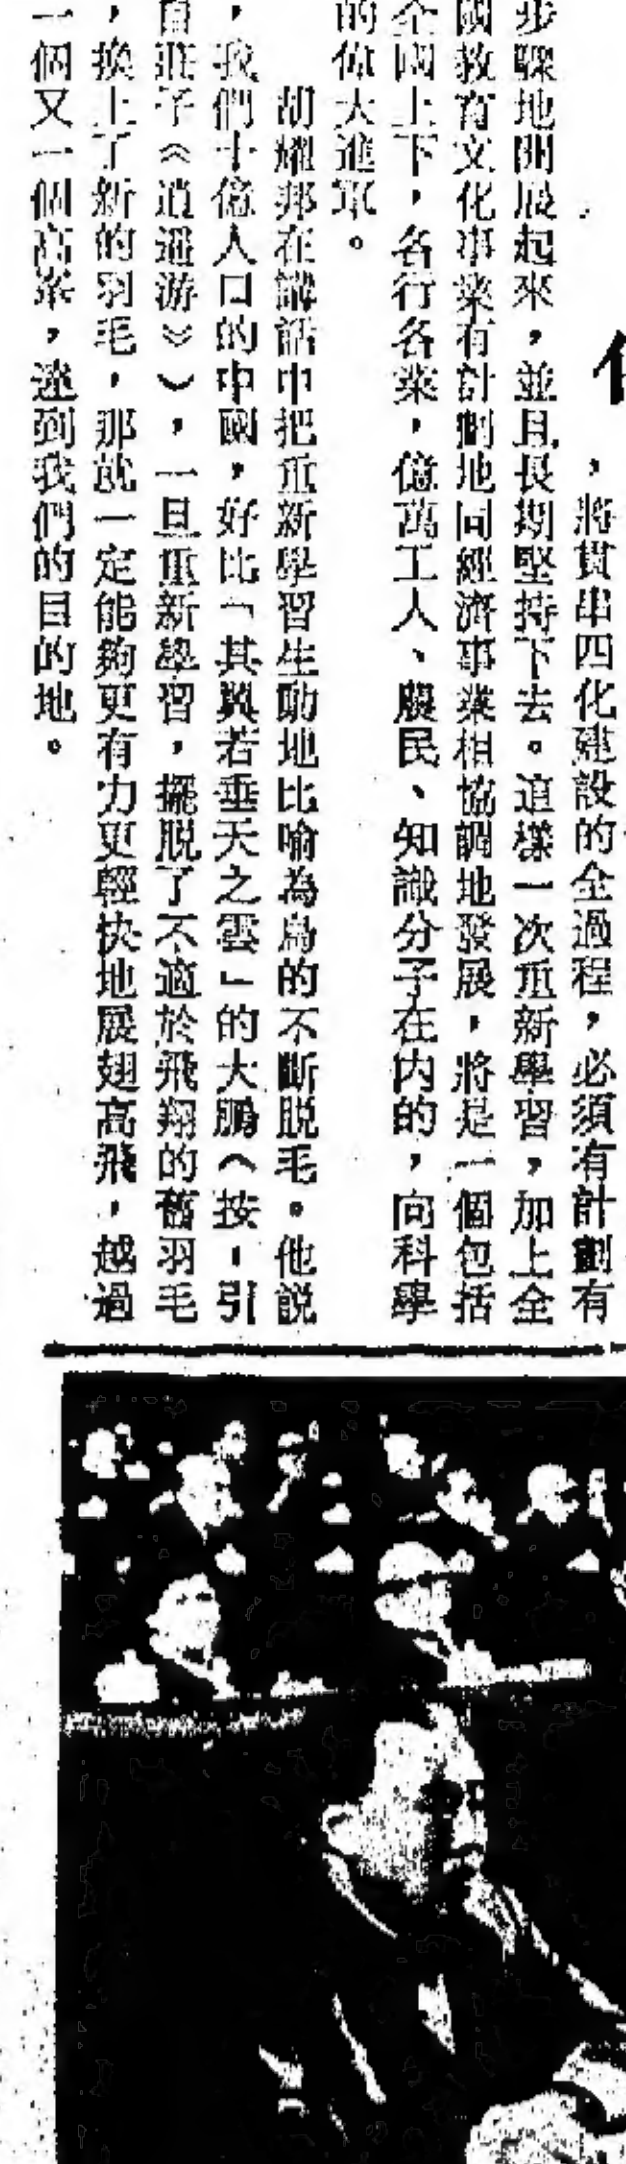 ，將貫串四化建設的全過程，必須有計劃有
步驟地開展起來，並且長期堅持下去。這樣一次重新學習，加上全
國教育文化事業有計劃地同經濟事業相協調地發展，將是一個包括
全國上下，各行各業，億萬工人、農民、知識分子在內的，向科學
的偉大進軍。
胡耀邦在講話中把重新學習生動地比喻為鳥的不斷脱毛。他説
，我們十億人口的中國，好比「其翼若垂天之雲」的大鵬（按：引
自莊子《逍遥游》），一旦重新學習，擺脱了不適於飛翔的舊羽毛
，換上了新的羽毛，那就一定能夠更有力更輕快地展翅高飛，越過
一個又一個高峯，達到我們的目的地。